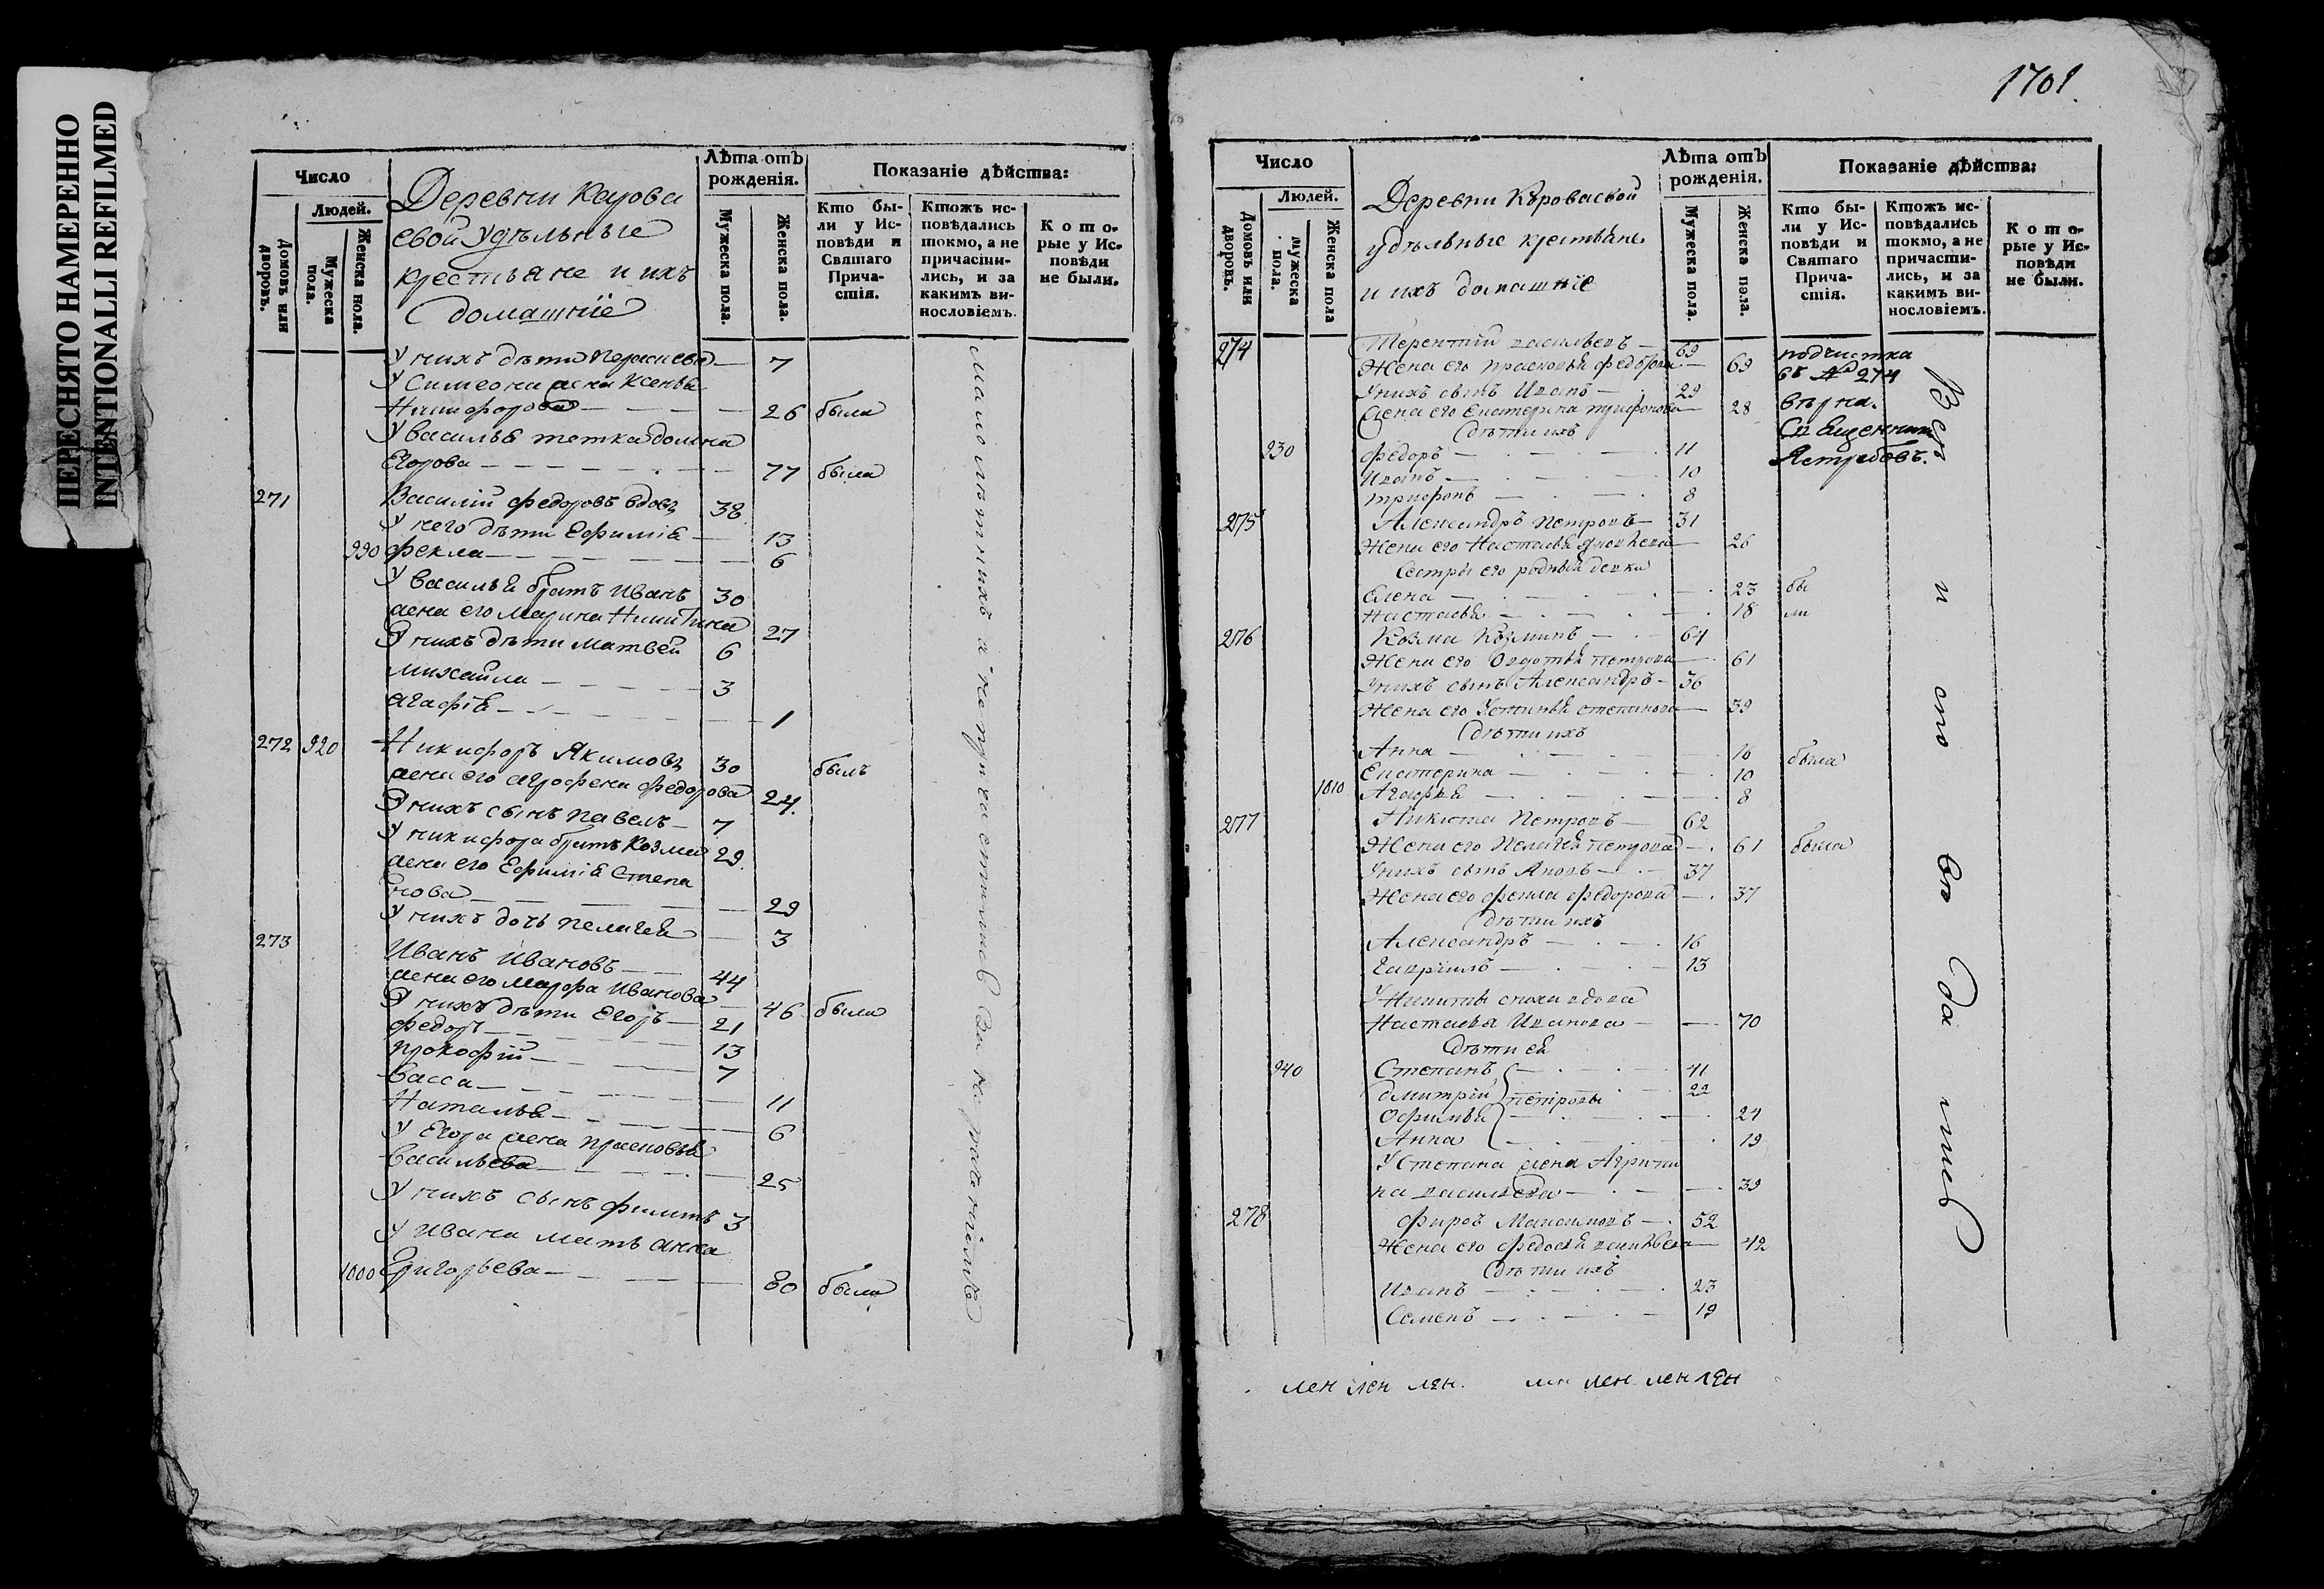 ПЕРЕСНЯТО НАМЕРЕННО
INTENTIONALLI REFILMED
Число
Людей.
Домовъ или дворовъ.
Мужеска пола.
Женска пола.
Деревни Карова
евой удѣльные
крестьяне и ихъ
домашніе
Лѣта отъ рожденія.
Мужеска пола.
Женска пола.
Показаніе дѣйства:
Кто бы-
ли у Ис-
повѣди и
Святаго
Прича-
стія.
Ктожъ ис-
повѣдались
токмо, а не
причасти-
лись, и за
какимъ ви-
нословіемъ.
Кото-
рые у Ис-
повѣди
не были.
У нихъ дѣти 7
У Симеона жена Ксенья
Никифорова 26 была
У Василья тетка Домна
Егорова 77 была
271 Василій Федоровъ вдовъ 38
У него дѣти Ефимія 13
990 Фекла 6
У Василья братъ Иванъ 30
жена его Марина Никитина 27
У нихъ дѣти Матвей 6
Михайла 3
Агафія 1
272 920 Никифоръ Якимовъ 30 былъ
жена его Агрофена Федорова 24
У нихъ сынъ Павелъ 7
У Никифора братъ Козма 29
жена его Ефимія Степа
нова 29
У нихъ дочь Пелагея 3
273 Иванъ Ивановъ 44
жена его Марфа Иванова 46 была
У нихъ дѣти Егоръ 21
Федоръ 13
Прокофій 7
Васса 11
Наталья 6
У Егора жена Прасковья
Васильева 25
У нихъ сынъ Филитъ 3
У Ивана мать Анна
1000 Григорьева 80 была
1701.
Число
Людей.
Домовъ или дворовъ.
Мужеска пола.
Женска пола
Деревни Короваевой
удѣльные крестьяне
и ихъ домашніе
Лѣта отъ рожденія.
Мужеска пола.
Женска пола.
Показаніе дѣйства:
Кто бы-
ли у Ис-
повѣди и
Святаго
Прича-
стія.
Ктожъ ис-
повѣдались
токмо, а не
причасти-
лись, и за
какимъ ви-
нословіемъ.
Кото-
рые у Ис-
повѣди
не были.
274 Терентій Васильевъ 69
Жена его Прасковья Федорова 69
У нихъ сынъ Иванъ 29
Жена его Екатерина Трифонова 28
Дѣти ихъ
930 Федоръ 11
Иванъ 10
Трифонъ 8
подчистка
въ № 274
вѣрна.
Священникъ
Ястребовъ.
275 Александръ Петровъ 31
Жена его Настасья 26
Сестры его родныя девки
Елена 23 бы
Настасья 18 ли
276 Козма Козминъ 64
Жена его Авдотья Петрова 61
У нихъ сынъ Александръ 36
Жена его Устинья Степанова 39
Дѣти ихъ
Анна 16 была
Екатерина 10
1010 Агафья 8
277 Никита Петровъ 62
Жена его Пелагея Петрова 61 была
У нихъ сынъ Яковъ 37
Жена его Фекла Федорова 37
Дѣти ихъ
Александръ 16
Гавріилъ 13
У Никиты сноха вдова
Настасья Иванова 70
Дѣти ей
940 Степанъ 41
Дмитрій Петровы 22
Офимья 24
Анна 19
У Степана жена Агрипи
на Васильева 39
278 Фиръ Максимовъ 52
Жена его Федосья 42
Дѣти ихъ
Иванъ 23
Семенъ 19
лен лен лен. лен лен лен лен